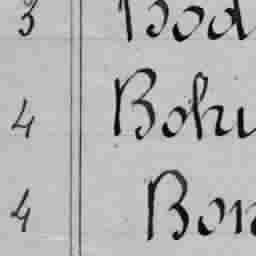 3 Bod
4 Bohu
4 Bon